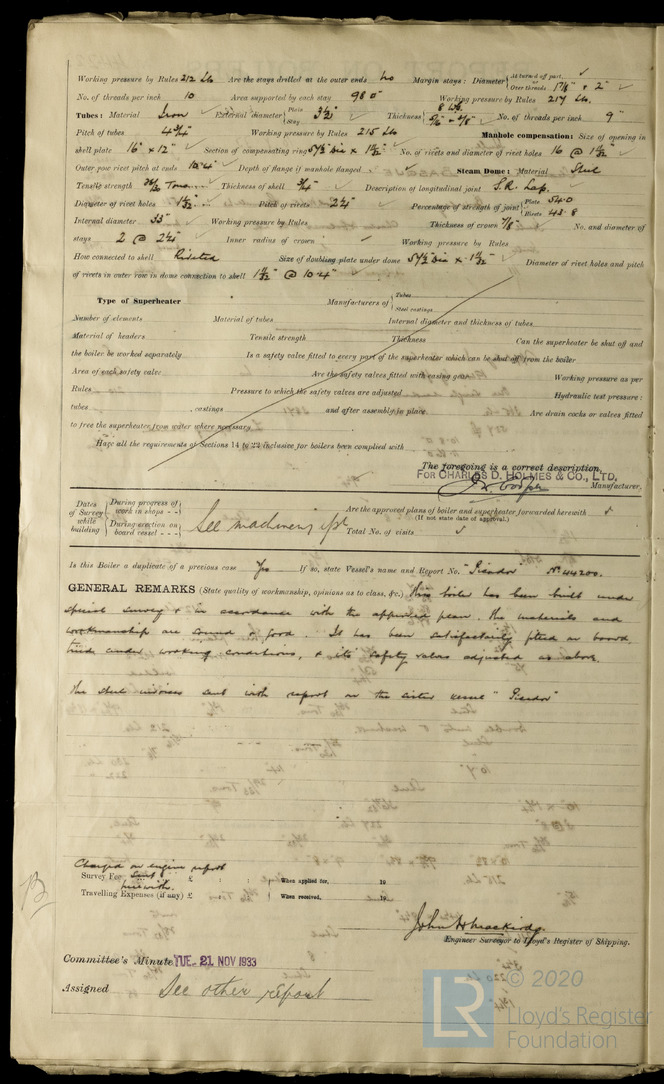 Working pressure by Rules 212 Lb Are the stays drilled at the outer ends No Margin stays: Diameter { At turned off part, or Over threads 1 7/8" & 2"
No. of threads per inch 10 Area supported by each stay 98 □" Working pressure by Rules 217 Lb.
Tubes: Material Iron External diameter { Plain Stay 3 1/2" Thickness { 8 WG 5/16" & 3/8" No. of threads per inch 9"
Pitch of tubes 4 3/4" Working pressure by Rules 215 Lb Manhole compensation: Size of opening in
shell plate 16" x 12" Section of compensating ring No. of rivets and diameter of rivet holes 16 @ 1 1/32"
Outer row rivet pitch at ends 10.4" Depth of flange if manhole flanged Steam Dome: Material Steel
Tensile strength 26/30 Tons Thickness of shell 3/4" Description of longitudinal joint S.R. Lap.
Diameter of rivet holes 1 1/32" Pitch of rivets 2 1/4" Percentage of strength of joint { Plate 54.0 Rivets 43.8
Internal diameter 33" Working pressure by Rules Thickness of crown 7/8" No. and diameter of
stays 2 @ 2 1/4" Inner radius of crown Working pressure by Rules
How connected to shell Riveted Size of doubling plate under dome Diameter of rivet holes and pitch
of rivets in outer row in dome connection to shell 1 1/32" @ 10.4"
Type of Superheater Manufacturers of { Tubes Steel castings
Number of elements Material of tubes Internal diameter and thickness of tubes
Material of headers Tensile strength Thickness Can the superheater be shut off and
the boiler be worked separately Is a safety valve fitted to every part of the superheater which can be shut off from the boiler
Area of each safety valve Are the safety valves fitted with easing gear Working pressure as per
Rules Pressure to which the safety valves are adjusted Hydraulic test pressure:
tubes , castings and after assembly in place Are drain cocks or valves fitted
to free the superheater from water where necessary
Have all the requirements of Sections 14 to 22 inclusive for boilers been complied with
The foregoing is a correct description,
FOR CHARLES D. HOLMES & CO., LTD.
Manufacturer.
Dates of Survey while building { During progress of work in shops - - During erection on board vessel - - - See machinery rpt
Are the approved plans of boiler and superheater forwarded herewith
(If not state date of approval.)
Total No. of visits
Is this Boiler a duplicate of a previous case Yes If so, state Vessel's name and Report No. "Picador" No 44200.
GENERAL REMARKS (State quality of workmanship, opinions as to class, &c.) This boiler has been built under
special survey & in accordance with the approved plan. The materials and
workmanship are sound & good. It has been satisfactorily fitted on board
tried under working conditions, & its safety valves adjusted as above.
The steel invoices sent with report on the sister vessel "Picador"
Charged on engine report
Survey Fee £ : : When applied for, 19
herewith.
Travelling Expenses (if any) £ When received, 19
Engineer Surveyor to Lloyd's Register of Shipping.
Committee's Minute TUE. 21 NOV 1933
Assigned See other report
© 2020
LR Lloyd's Register
Foundation